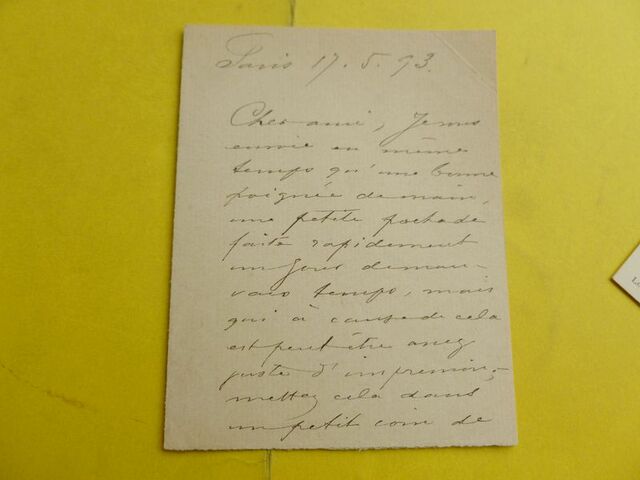 Paris 17. 5. 93.
Cher ami, Je vous
envoie en même
temps qu'une bonne
poignée de main,
une petite pochade
faite rapidement
un jour de mau-
vais temps, mais
qui à cause de cela
est peut être assez
juste d'impression,-
mettez cela dans
un petit coin de